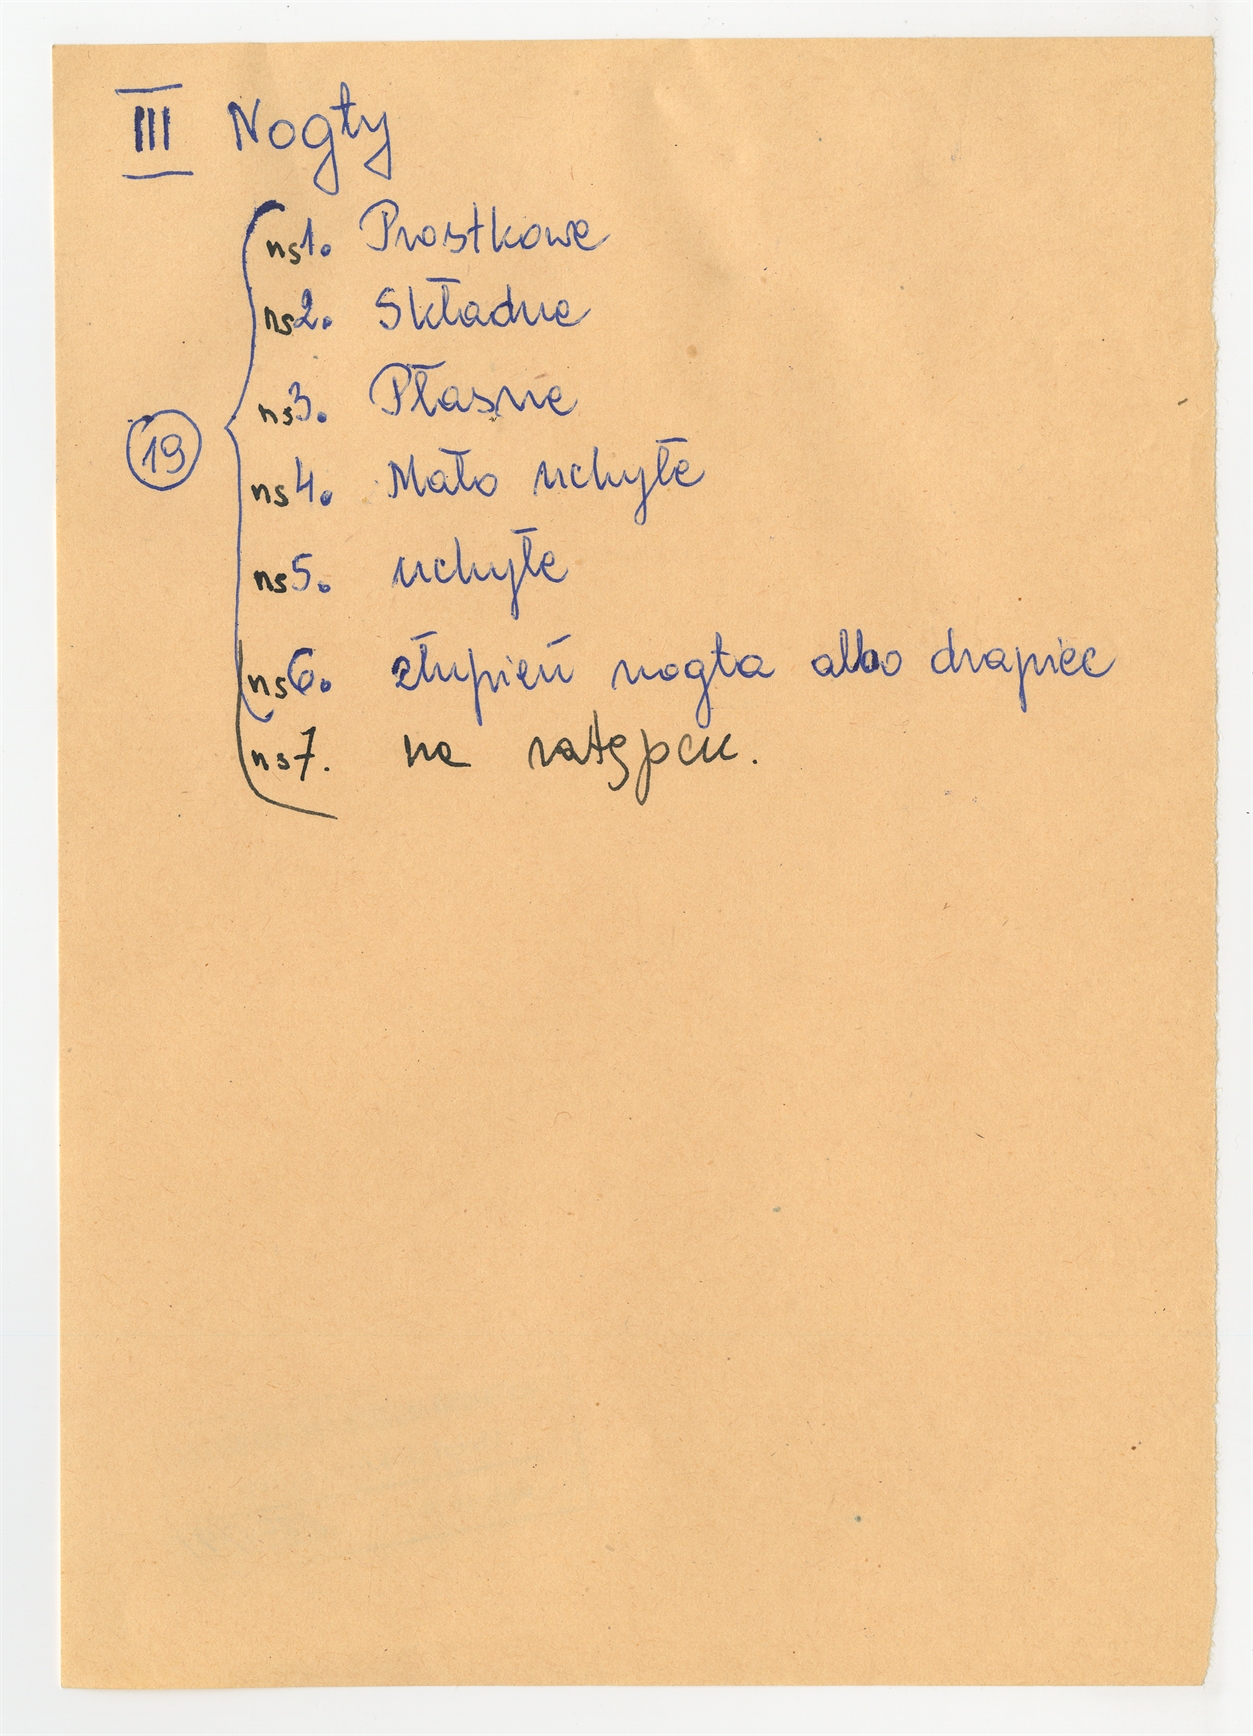 III Nogty
ns1. Prostkowe
ns2. Składne
ns3. Płasne
19
ns4. Mało uchyłe
ns5. uchyłe
ns6. złupień nogta albo drapiec
ns7. na